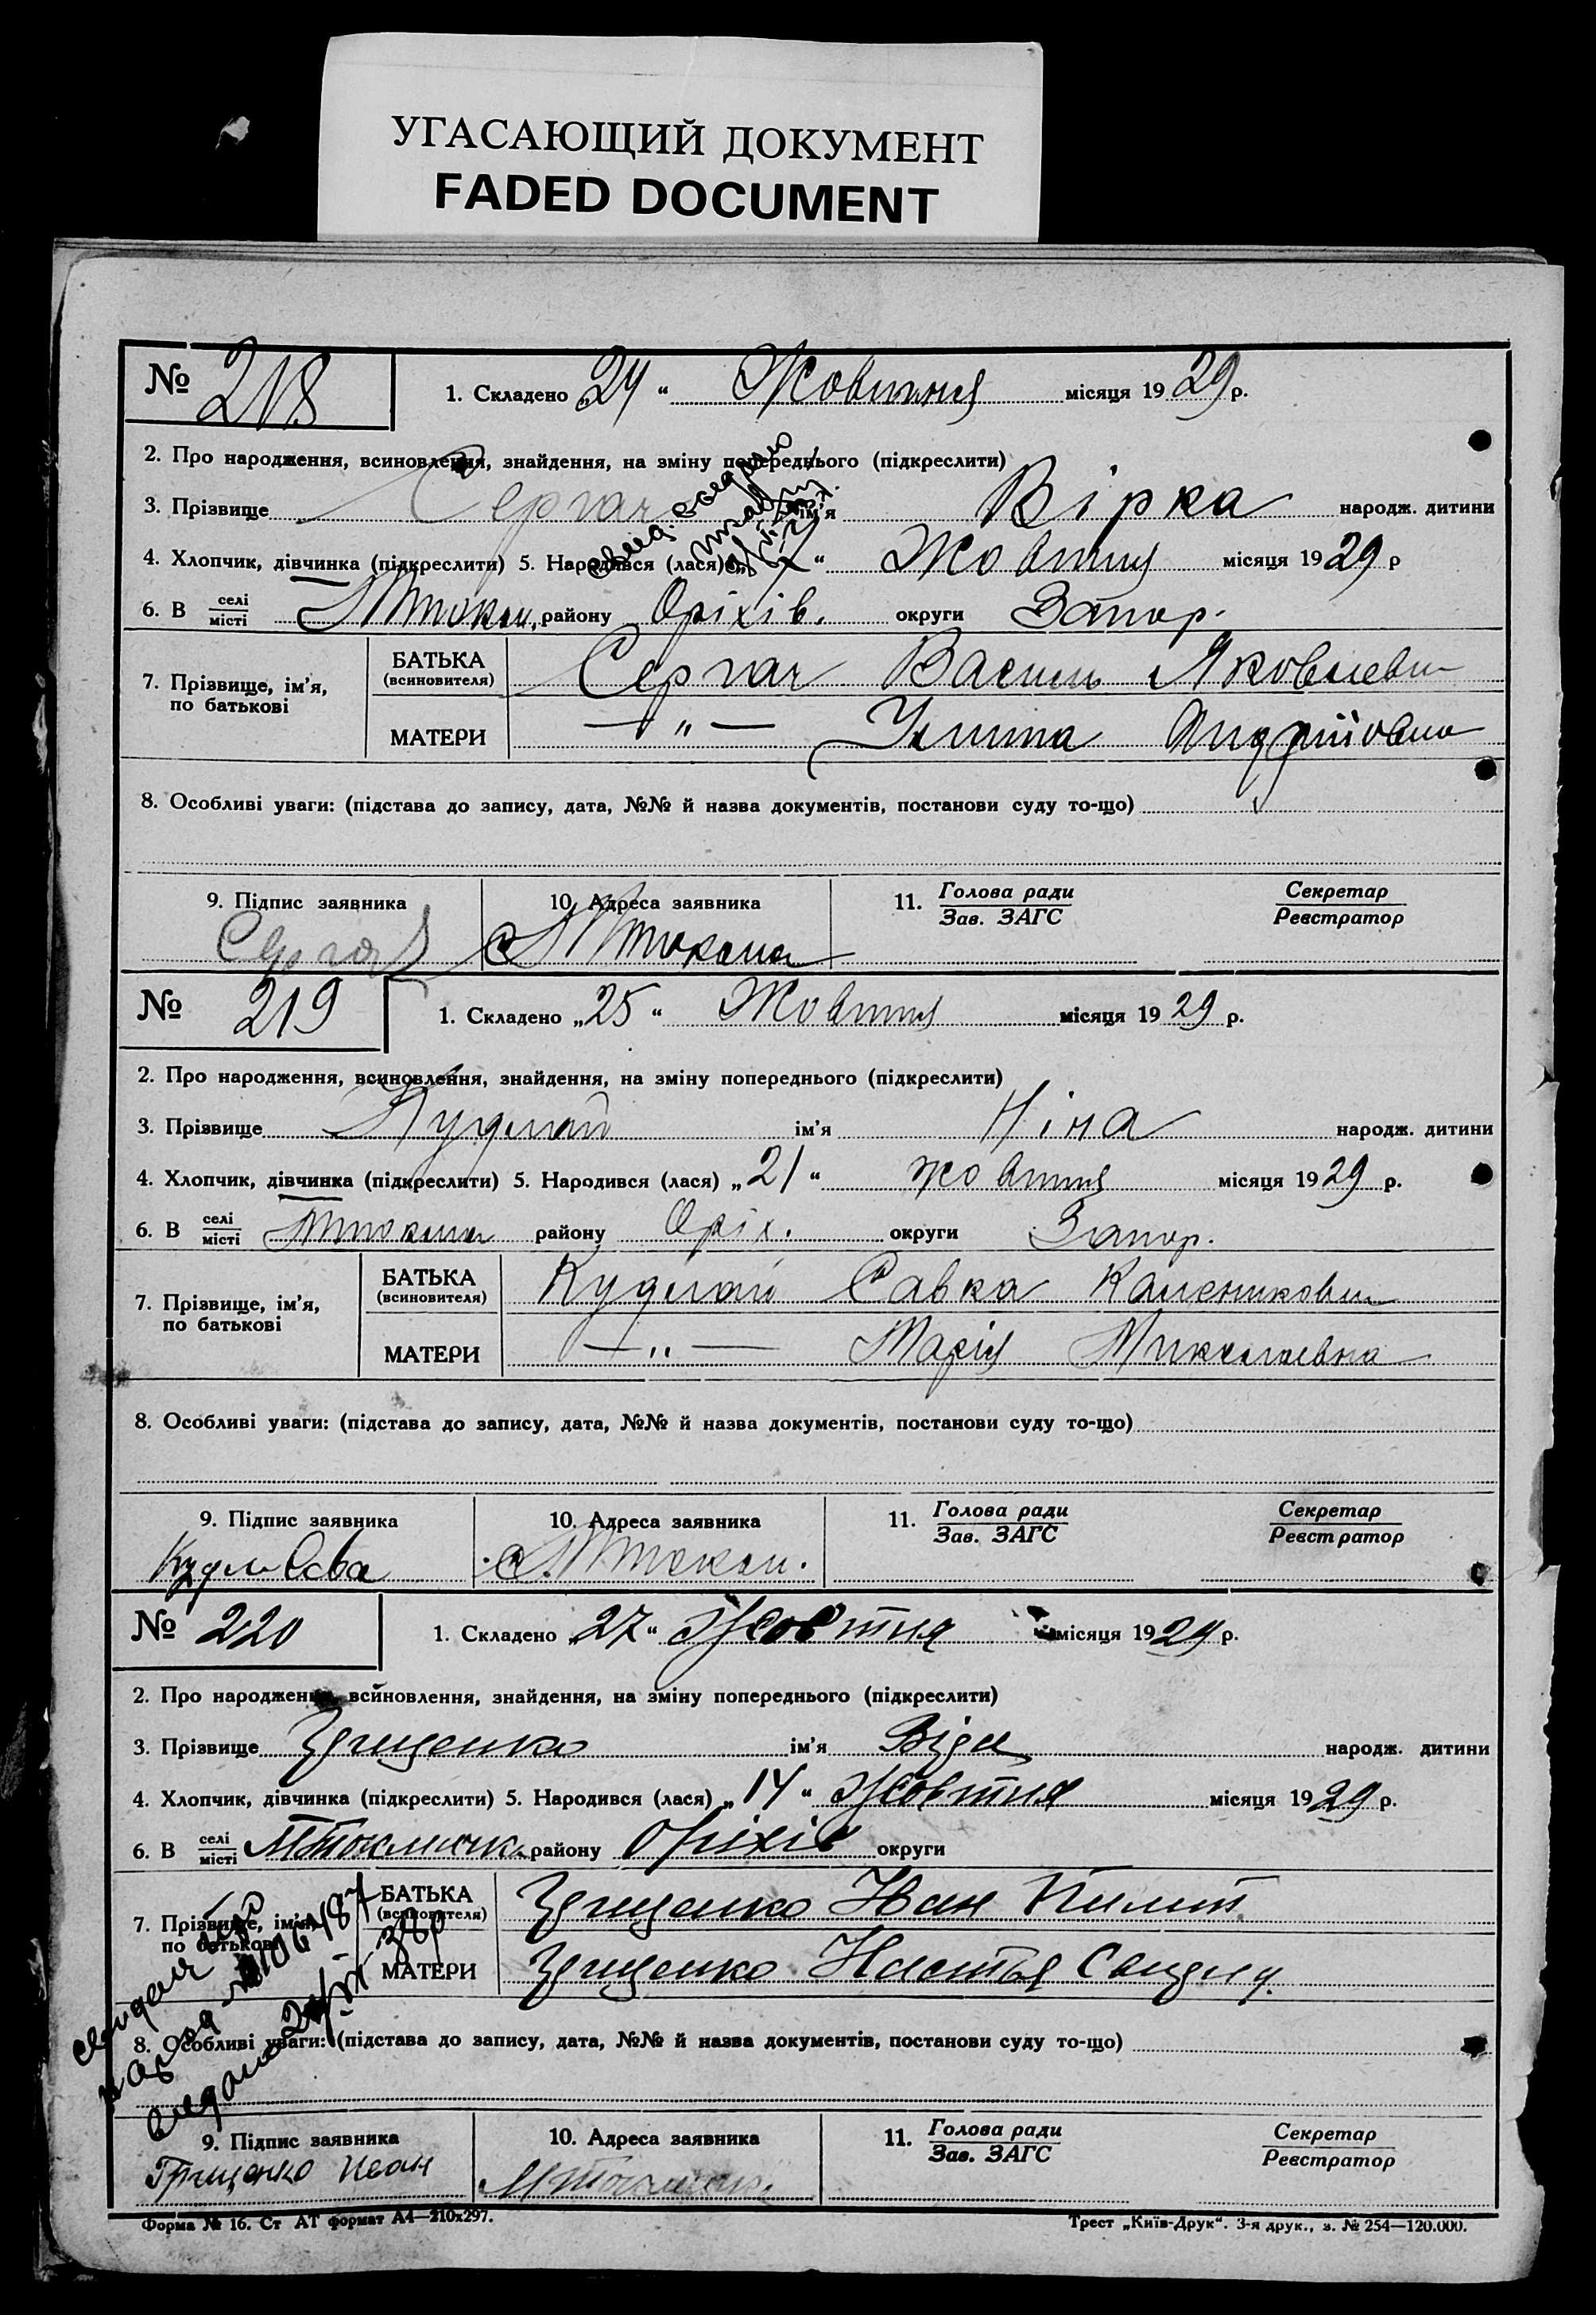 УГАСАЮЩИЙ ДОКУМЕНТ
FADED DOCUMENT
№ 218
1. Складено „24“ Жовтня місяця 1929 р.
2. Про народження, всиновлення, знайдення, на зміну попереднього (підкреслити)
3. Прізвище Сергач ім'я Вірка народж. дитини
4. Хлопчик, дівчинка (підкреслити) 5. Народився (лася) “ Жовтня місяця 1929 р
6. В селі/місті району Оріхів. округи Запор.
7. Прізвище, ім'я, по батькові
БАТЬКА (всиновителя) Сергач Василь Яковлевич
МАТЕРИ — „ — Улита Андріївна
8. Особливі уваги: (підстава до запису, дата, №№ й назва документів, постанови суду то-що)
9. Підпис заявника 10. Адреса заявника 11. Голова ради/Зав. ЗАГС Секретар/Реєстратор
Сергач
№ 219
1. Складено „25“ Жовтня місяця 1929 р.
2. Про народження, всиновлення, знайдення, на зміну попереднього (підкреслити)
3. Прізвище Кудлай ім'я Ніна народж. дитини
4. Хлопчик, дівчинка (підкреслити) 5. Народився (лася) „21“ жовтня місяця 1929 р.
6. В селі/місті району Оріх. округи Запор.
7. Прізвище, ім'я, по батькові
БАТЬКА (всиновителя) Кудлай Савка Каленикович
МАТЕРИ — „ — Марія Миколаевна
8. Особливі уваги: (підстава до запису, дата, №№ й назва документів, постанови суду то-що)
9. Підпис заявника 10. Адреса заявника 11. Голова ради/Зав. ЗАГС Секретар/Реєстратор
№ 220
1. Складено „27“ Жовтня місяця 1929 р.
2. Про народження, всиновлення, знайдення, на зміну попереднього (підкреслити)
3. Прізвище Грищенко ім'я народж. дитини
4. Хлопчик, дівчинка (підкреслити) 5. Народився (лася) „14“ Жовтня місяця 1929 р.
6. В селі/місті МТокмачк. району Оріхів округи
7. Прізвище, ім'я, по батькові
БАТЬКА (всиновителя) Грищенко Иван Пилип.
МАТЕРИ Грищенко Настя
8. Особливі уваги: (підстава до запису, дата, №№ й назва документів, постанови суду то-що)
9. Підпис заявника 10. Адреса заявника 11. Голова ради/Зав. ЗАГС Секретар/Реєстратор
Грищенко Иван МТокмачк.
Форма № 16. Ст АТ формат А4—210х297. Трест „Київ-Друк“. 3-я друк., з. № 254—120.000.